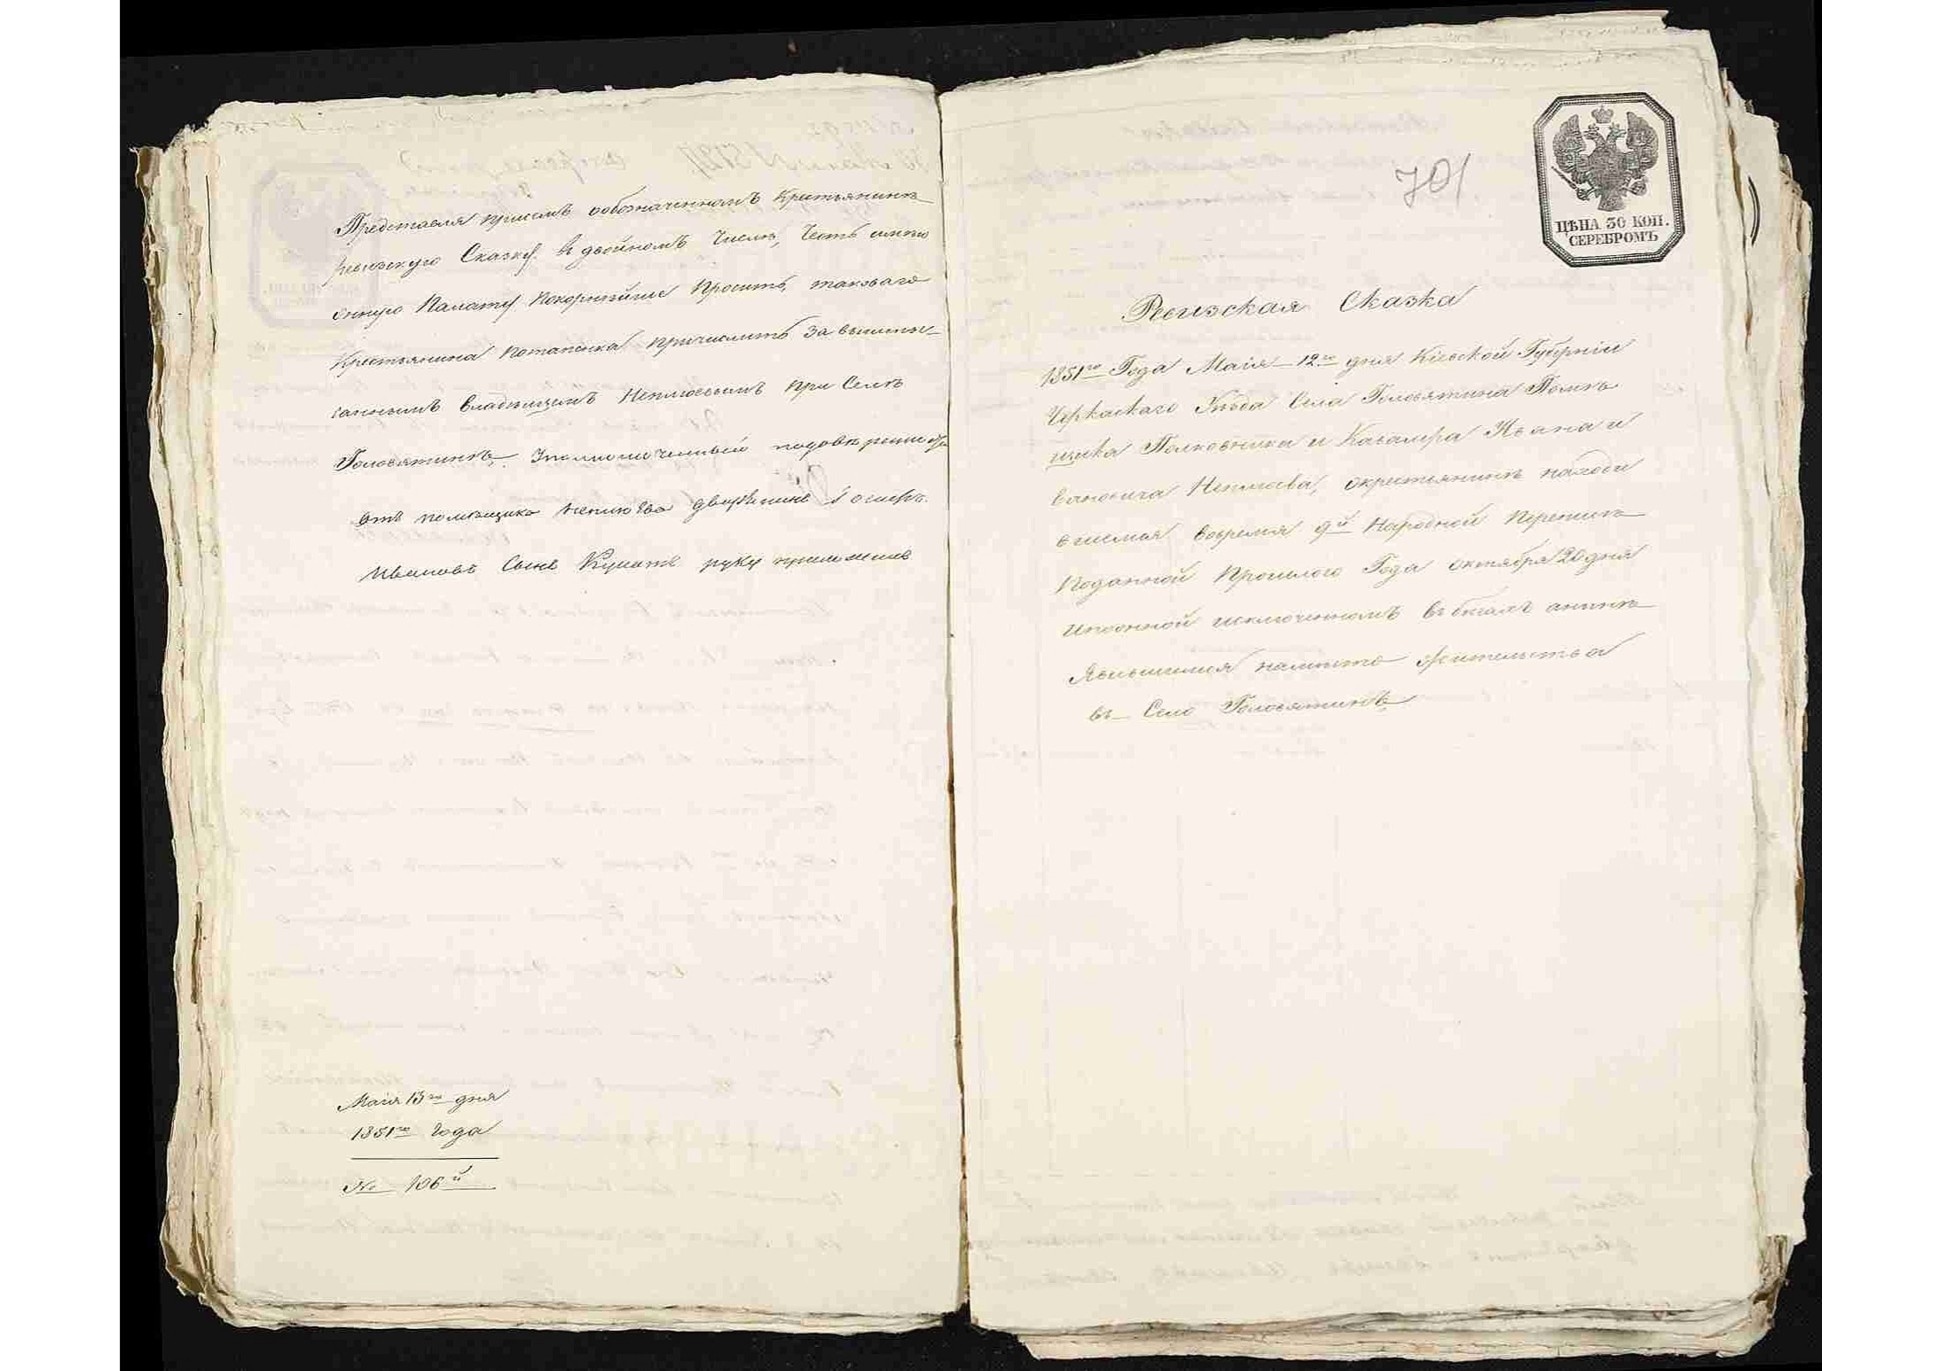 Представля присемъ ообозначенномъ Крестьянинѣ
ревизскую Сказку въ двойномъ Числѣ, Честь имѣю
Палату Покорнѣйше Просить, таковаго
Крестьянина Потапенка причислить за вышепи-
саннымъ Владѣльцемъ Неплюевымъ при Селѣ
Головятинѣ, Уполномоченный подовѣренности
отъ помѣщика Неплюева дворянинъ Iосифъ
Ивановъ Сынъ руку приложилъ
Маiя 13го дня
1851го Года
№ 106й
701
ЦѢНА 30 КОП.
СЕРЕБРОМЪ
Ревизская Сказка
1851го Года Маiя 12го дня Кiевской Губернiи
Черкаскаго Уѣзда Села Головятина Помѣ
щика Полковника и Кавалера Ивана И
вановича Неплюева, окрестьянинѣ находи
вшемся вовремя 9й Народной Переписи
Поданной Прошлого Года октября 20 дня
Ипооной исключенномъ въ бѣгахъ анинѣ
Явившимся намѣсто жительства
въ Село Головятинъ